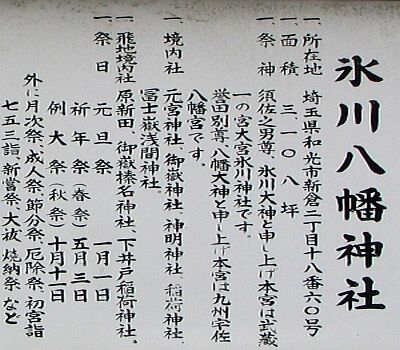 氷川八幡神社
一、所在地 埼玉県和光市新倉二丁目十八番六〇号
一、面積 三一〇八坪
一、祭神 須佐之男尊、氷川大神と申し上げ本宮は武蔵
一の宮大宮氷川神社です。
誉田別尊、八幡大神と申し上げ本宮は九州宇佐
八幡宮です。
一、境内社 元宮神社、御嶽神社、神明神社、稲荷神社、
冨士嶽浅間神社。
一、飛地境内社 原新田、御嶽榛名神社、下井戸稲荷神社、
一、祭日 元旦祭 一月一日
祈年祭(春祭) 五月三日
例大祭(秋祭) 十月十一日
外に月次祭、成人祭、節分祭、厄除祭、初宮詣
七五三詣、新嘗祭、大祓、焼納祭、など